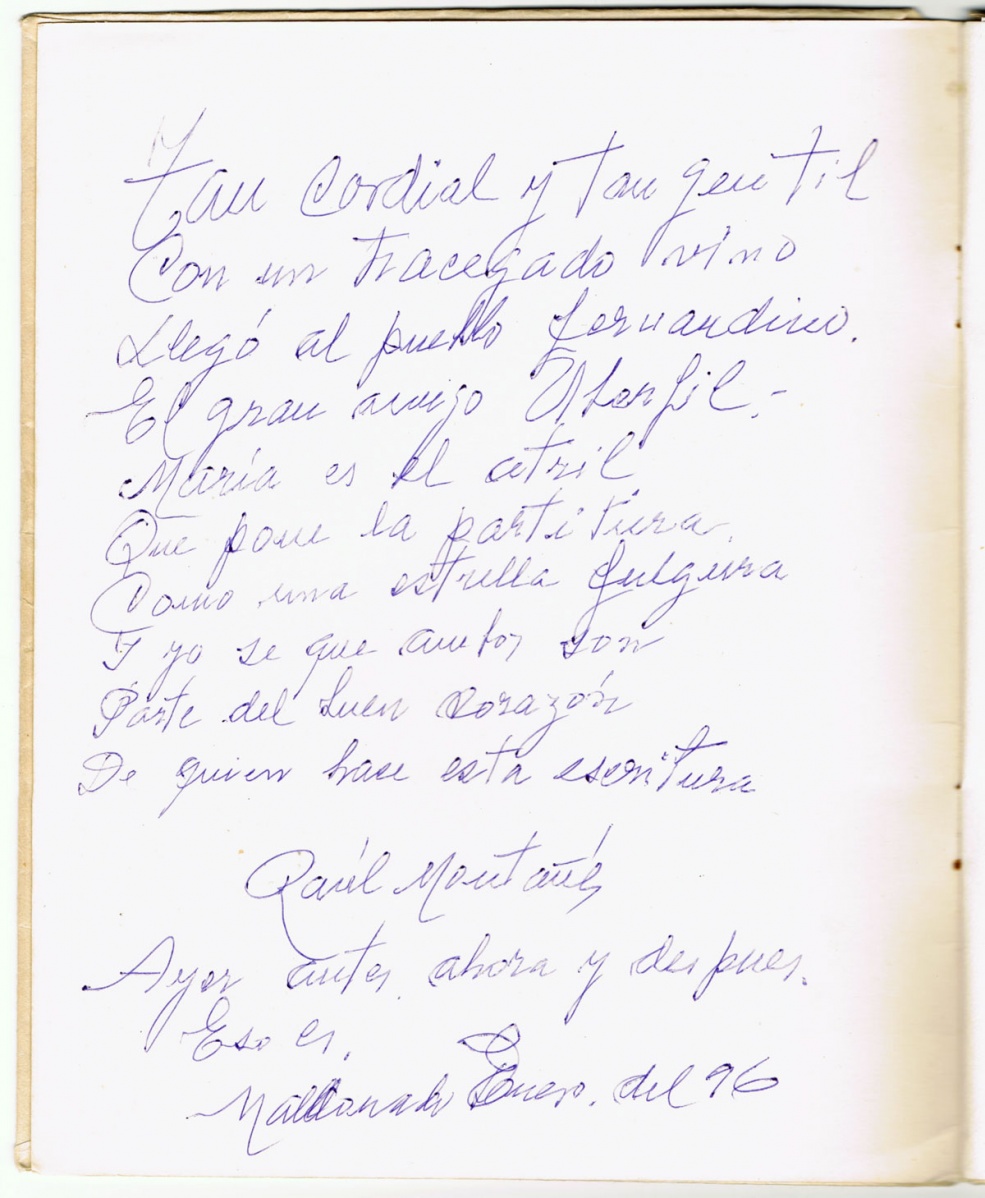 Tan Cordial y tan gentil
Con un tracegado vino
Llegó al pueblo fernandino.
El gran amigo Abarfil.-
María es el atril
Que pone la partitura
Como una estrella fulgura
Y yo se que ambos son
Parte del buen Corazón
De quien hase esta escritura
Raúl Montañés
Ayer antes ahora y despues.
Eso es.
Maldonado Enero. del 96